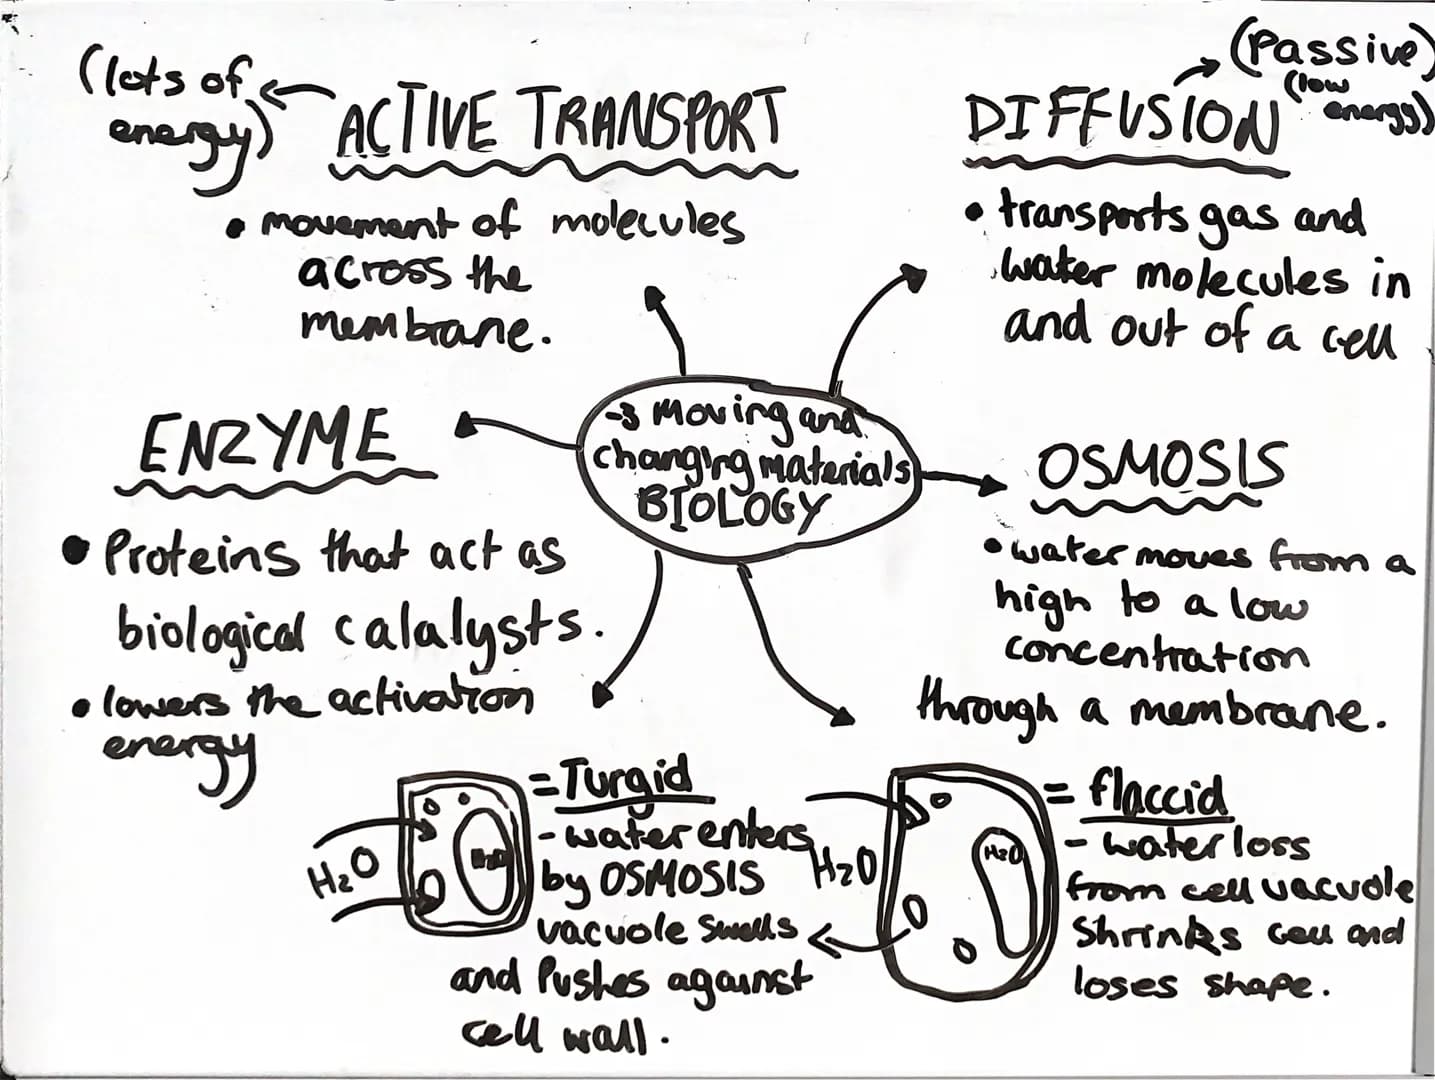 (lots of
energy)
ACTIVE TRANSPORT
• movement of molecules
across the
membrane.
(Passive)
(low
energy)
DIFFUSION
• transports gas and
water molecules in
and out of a cell
→ Moving and
changing materials
BIOLOGY
ENZYME
• Proteins that act as
biological catalysts.
• lowers the activation
energy
OSMOSIS
• water moves from a
high to a low
concentration
through a membrane.
H₂O
H₂O
= Turgid
- water enters
by OSMOSIS
vacuole swells
and Pushes against
cell wall.
H₂O
H₂O
= flaccid
- water loss
from cell vacuole
Shrinks cell and
loses shape.